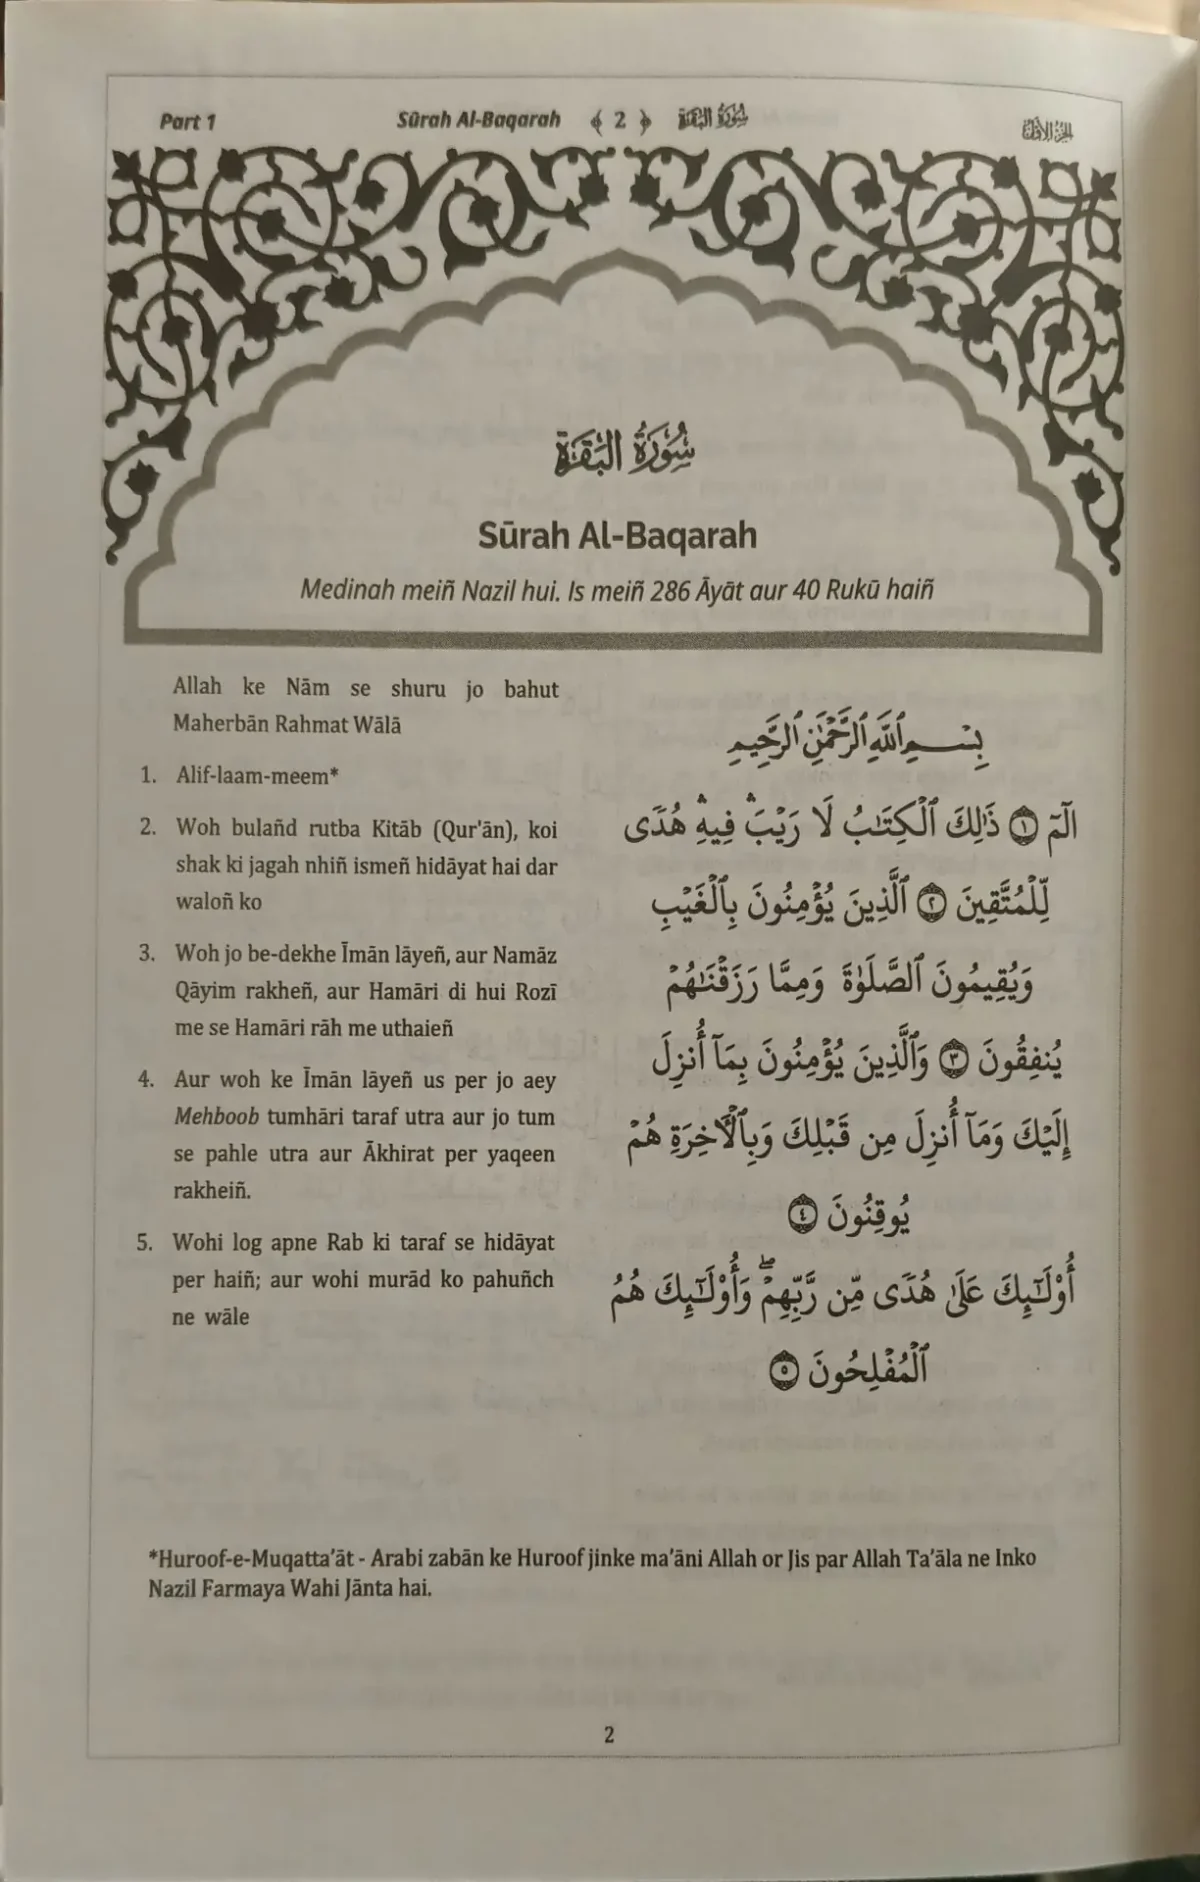 Part 1
Sūrah Al-Baqarah ﴾ 2 ﴿ سُورَةُ البَقَرَة
الجزء الأول
سُورَةُ البَقَرَة
Sūrah Al-Baqarah
Medinah meiñ Nazil hui. Is meiñ 286 Āyāt aur 40 Rukū haiñ
Allah ke Nām se shuru jo bahut
Maherbān Rahmat Wālā
1. Alif-laam-meem*
2. Woh bulañd rutba Kitāb (Qur'ān), koi
shak ki jagah nhiñ ismeñ hidāyat hai dar
waloñ ko
3. Woh jo be-dekhe Īmān lāyeñ, aur Namāz
Qāyim rakheñ, aur Hamāri di hui Rozī
me se Hamāri rāh me uthaieñ
4. Aur woh ke Īmān lāyeñ us per jo aey
Mehboob tumhāri taraf utra aur jo tum
se pahle utra aur Ākhirat per yaqeen
rakheiñ.
5. Wohi log apne Rab ki taraf se hidāyat
per haiñ; aur wohi murād ko pahuñch
ne wāle
بِسْمِ ٱللَّهِ ٱلرَّحْمَٰنِ ٱلرَّحِيمِ
الٓمٓ ١ ذَٰلِكَ ٱلْكِتَٰبُ لَا رَيْبَ ۛ فِيهِ ۛ هُدًى
لِّلْمُتَّقِينَ ٢ ٱلَّذِينَ يُؤْمِنُونَ بِٱلْغَيْبِ
وَيُقِيمُونَ ٱلصَّلَوٰةَ وَمِمَّا رَزَقْنَٰهُمْ
يُنفِقُونَ ٣ وَٱلَّذِينَ يُؤْمِنُونَ بِمَآ أُنزِلَ
إِلَيْكَ وَمَآ أُنزِلَ مِن قَبْلِكَ وَبِٱلْءَاخِرَةِ هُمْ
يُوقِنُونَ ٤
أُو۟لَٰٓئِكَ عَلَىٰ هُدًى مِّن رَّبِّهِمْ ۖ وَأُو۟لَٰٓئِكَ هُمُ
ٱلْمُفْلِحُونَ ٥
*Huroof-e-Muqatta'āt - Arabi zabān ke Huroof jinke ma'āni Allah or Jis par Allah Ta'āla ne Inko
Nazil Farmaya Wahi Jānta hai.
2